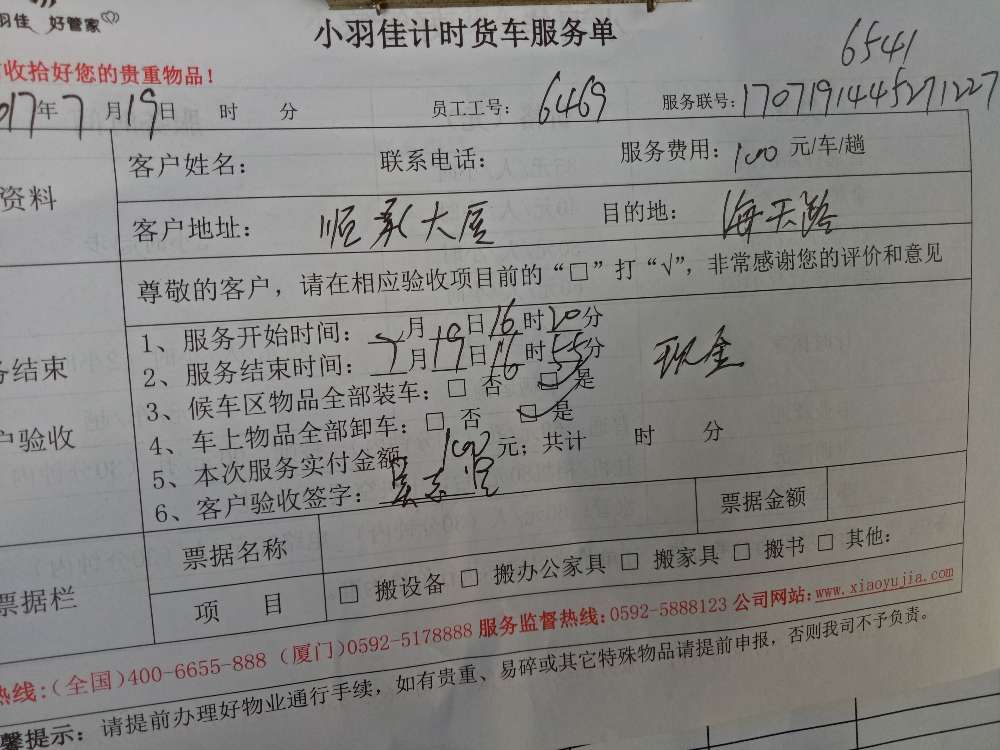 羽佳 好管家
小羽佳计时货车服务单
6541
收拾好您的贵重物品!
017年7月19日 时 分 员工工号: 6469 服务联号: 1707191445271227
资料
客户姓名: 联系电话: 服务费用: 100 元/车/趟
客户地址: 顺承大厦 目的地: 海天路
尊敬的客户，请在相应验收项目前的“□”打“√”，非常感谢您的评价和意见
务结束
户验收
1、服务开始时间: 7月19日16时20分
2、服务结束时间: 7月19日16时55分
现金
3、候车区物品全部装车: □ 否 ☑ 是
4、车上物品全部卸车: □ 否 ☑ 是
5、本次服务实付金额: 100元; 共计 时 分
6、客户验收签字:
票据栏
票据名称 票据金额
项 目 □ 搬设备 □ 搬办公家具 □ 搬家具 □ 搬书 □ 其他:
热线:(全国)400-6655-888 (厦门)0592-5178888 服务监督热线: 0592-5888123 公司网站: www.xiaoyujia.com
馨提示: 请提前办理好物业通行手续，如有贵重、易碎或其它特殊物品请提前申报，否则我司不予负责。